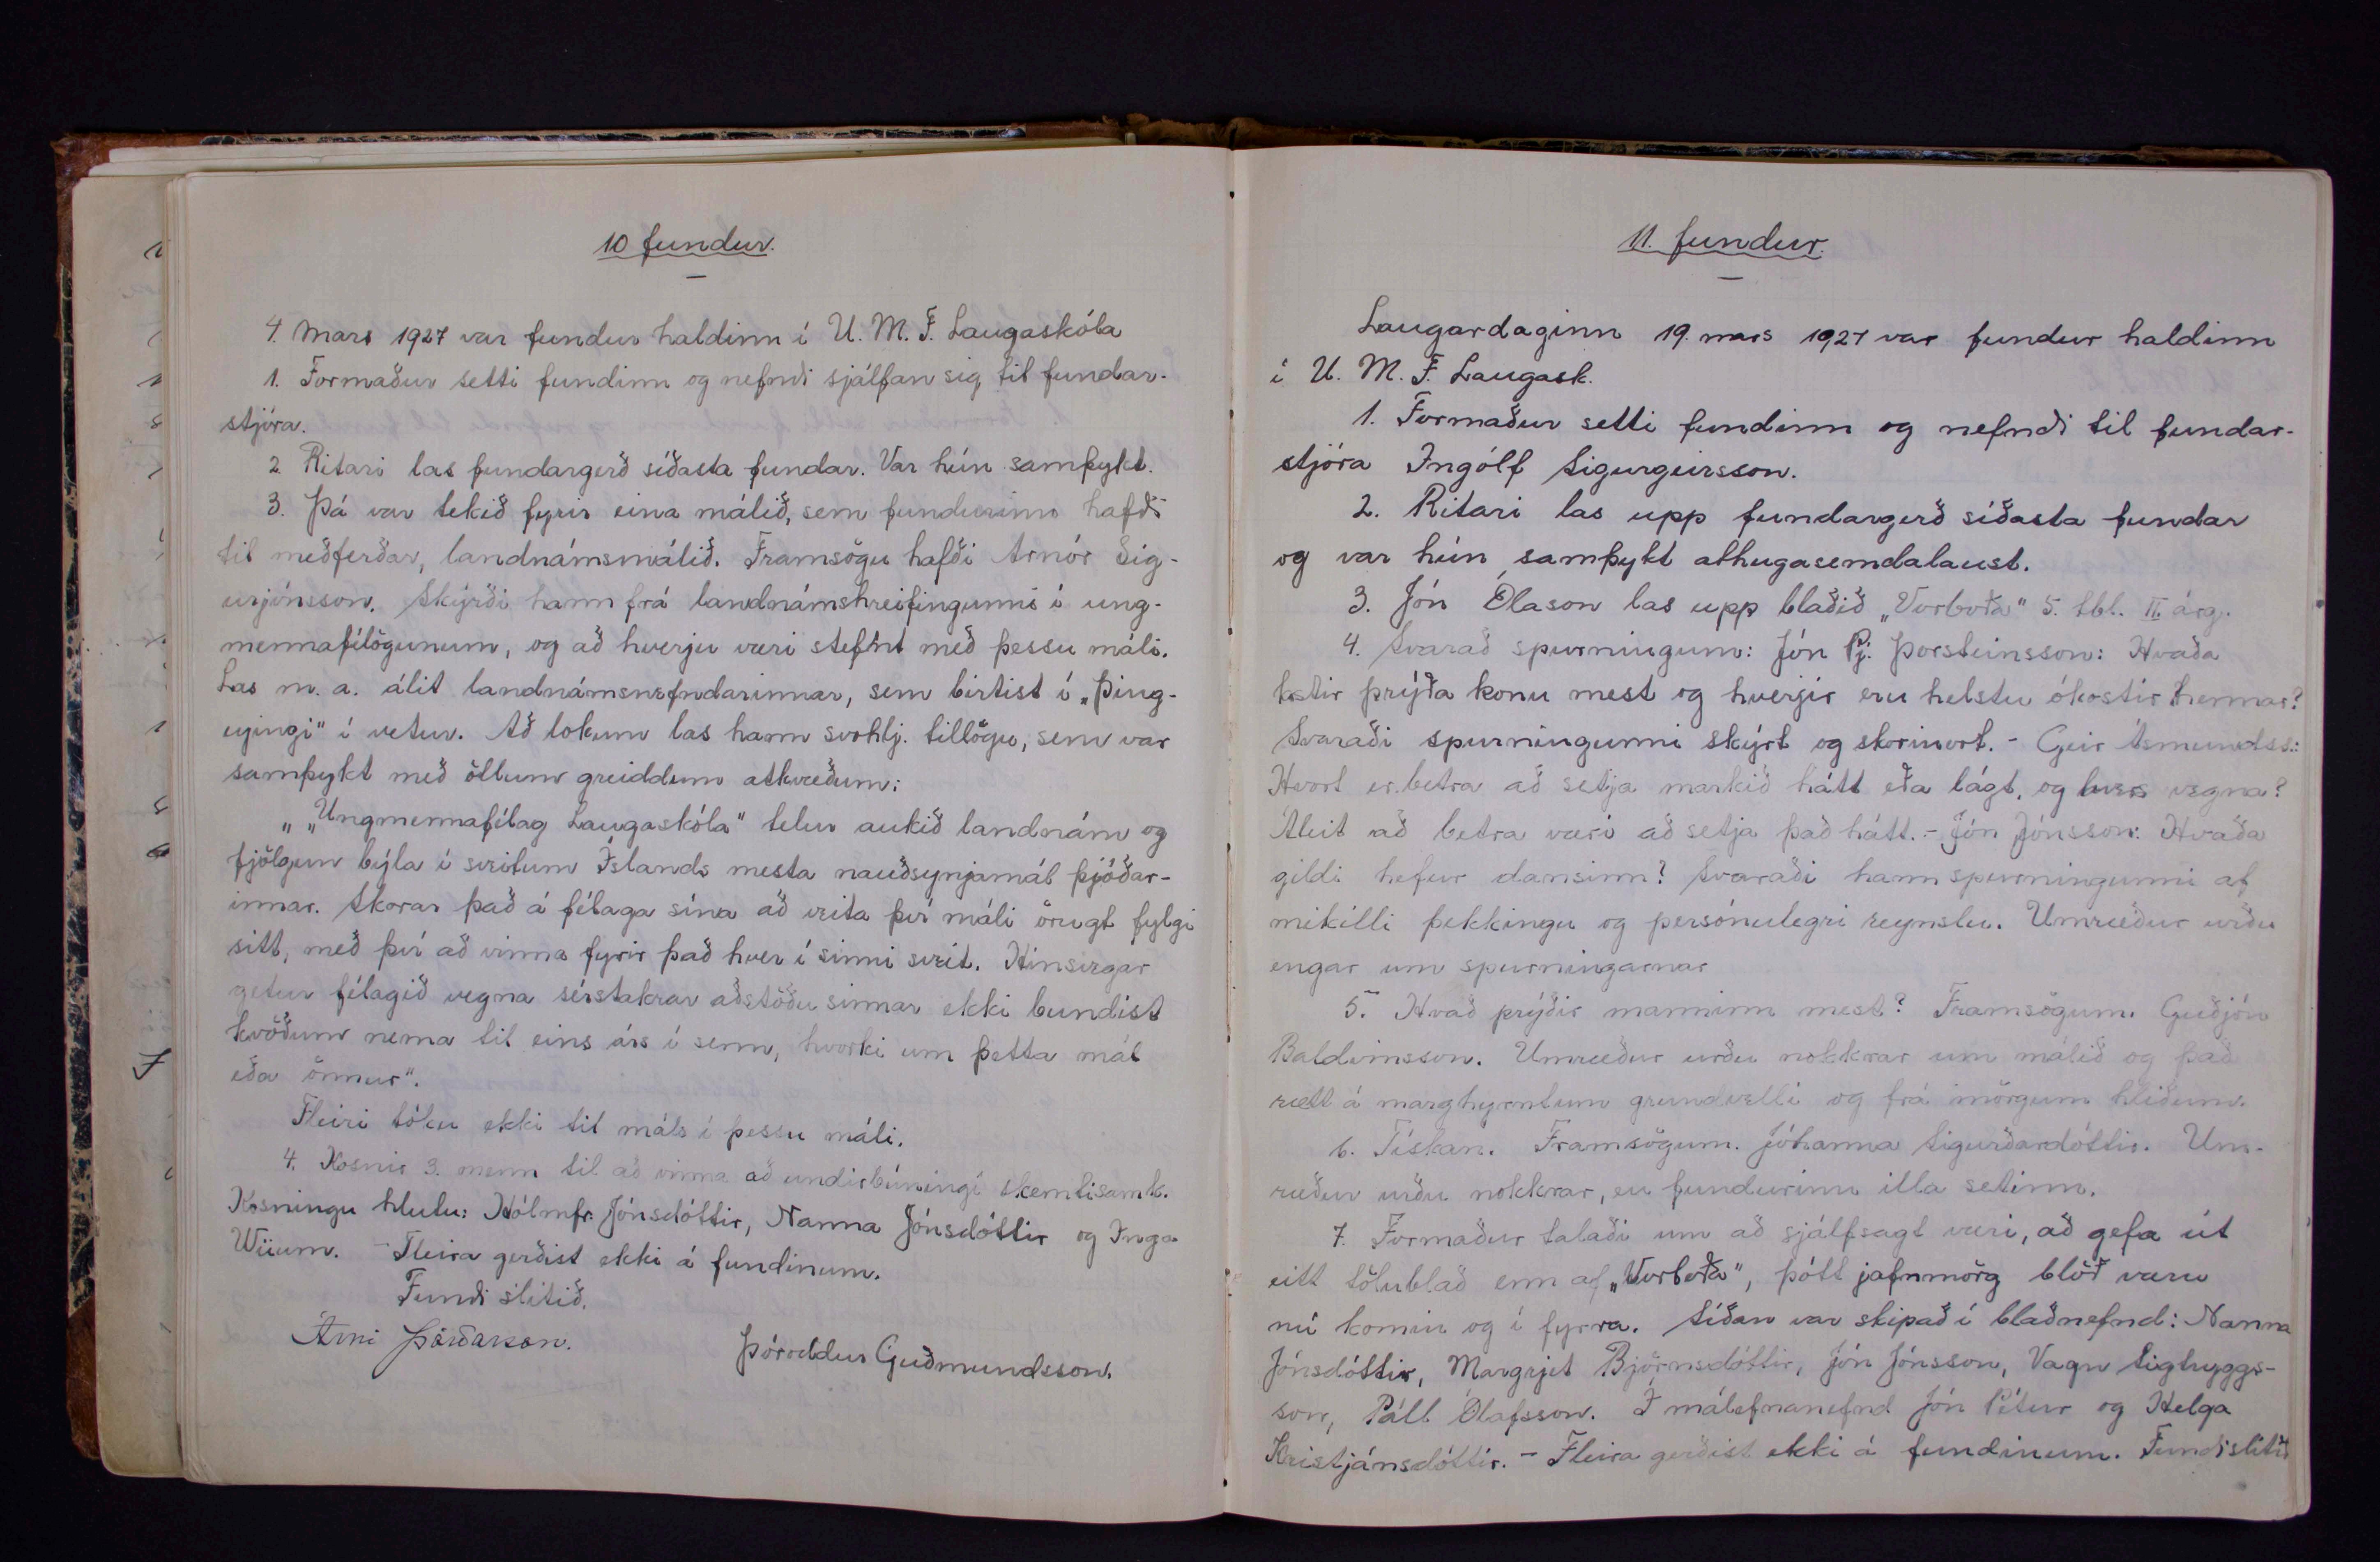 10 fundur.
4. Mars 1927 var fundur haldinn í U. M. F. Laugaskóla
1. Formaður setti fundinn og nefndi sjálfan sig til fundar-
stjóra.
2. Ritari las fundargerð síðasta fundar. Var hún samþykt.
3. Þá var tekið fyrir eina málið, sem fundurinn hafði
til meðferðar, landnámsmálið. Framsögu hafði Arnór Sig-
urjónsson. Skýrði hann frá landnámshreifingunni í ung-
mennafélögunum, og að hverju væri stefnt með þessu máli.
Las m. a. álit landnámsnefndarinnar, sem birtist í „Þing-
eyingi" í vetur. Að lokum las hann svohlj. tillögu, sem var
samþykt með öllum greiddum atkvæðum:
„„Ungmennafélag Laugaskóla" telur aukið landnám og
fjölgun býla í sveitum Íslands mesta nauðsynjamál þjóðar-
innar. Skorar það á félaga sína að veita því máli örugt fylgi
sitt, með því að vinna fyrir það hver í sinni sveit. Hinsvegar
getur félagið vegna sérstakrar aðstöðu sinnar ekki bundist
kvöðum nema til eins árs í senn, hvorki um þetta mál
eða önnur".
Fleiri tóku ekki til máls í þessu máli.
4. Kosnir 3. menn til að vinna að undirbúningi skemtisamk.
Kosningu hlutu: Hólmfr. Jónsdóttir, Nanna Jónsdóttir og Inga
Wiium. - Fleira gerðist ekki á fundinum.
Fundi slitið.
Árni Þórðarson.
Þóroddur Guðmundsson.
11. fundur.
Laugardaginn 19. mars 1927 var fundur haldinn
í U. M. F. Laugask.
1. Formaður setti fundinn og nefndi til fundar-
stjóra Ingólf Sigurgeirsson.
2. Ritari las upp fundargerð síðasta fundar
og var hún samþykt athugasemdalaust.
3. Jón Ólason las upp blaðið „Vorboða" 5. tbl. II. árg.
4. Svarað spurningum: Jón Pj. Þorsteinsson: Hvaða
kostir prýða konu mest og hverjir eru helstu ókostir hennar?
Svaraði spurningunni skýrt og skorinort. - Geir Ásmundss.:
Hvort er betra að setja markið hátt eða lágt, og hvers vegna?
Áleit að betra væri að setja það hátt. - Jón Jónsson: Hvaða
gildi hefur dansinn? Svaraði hann spurningunni af
mikilli þekkingu og persónulegri reynslu. Umræður urðu
engar um spurningarnar
5. Hvað prýðir manninn mest? Framsögum. Guðjón
Baldvinsson. Umræður urðu nokkrar um málið og það
rætt á marghyrntum grundvelli og frá mörgum hliðum.
6. Tískan. Framsögum. Jóhanna Sigurðardóttir. Um-
ræður urðu nokkrar, en fundurinn illa setinn.
7. Formaður talaði um að sjálfsagt væri, að gefa út
eitt tölublað enn af „Vorboða", þótt jafnmörg blöð væru
nú komin og í fyrra. Síðan var skipað í blaðnefnd: Nanna
Jónsdóttir, Margrjet Björnsdóttir, Jón Jónsson, Vagn Sigtryggs-
son, Páll Ólafsson. Í málefnanefnd Jón Pétur og Helga
Kristjánsdóttir. - Fleira gerðist ekki á fundinum. Fundi slitið